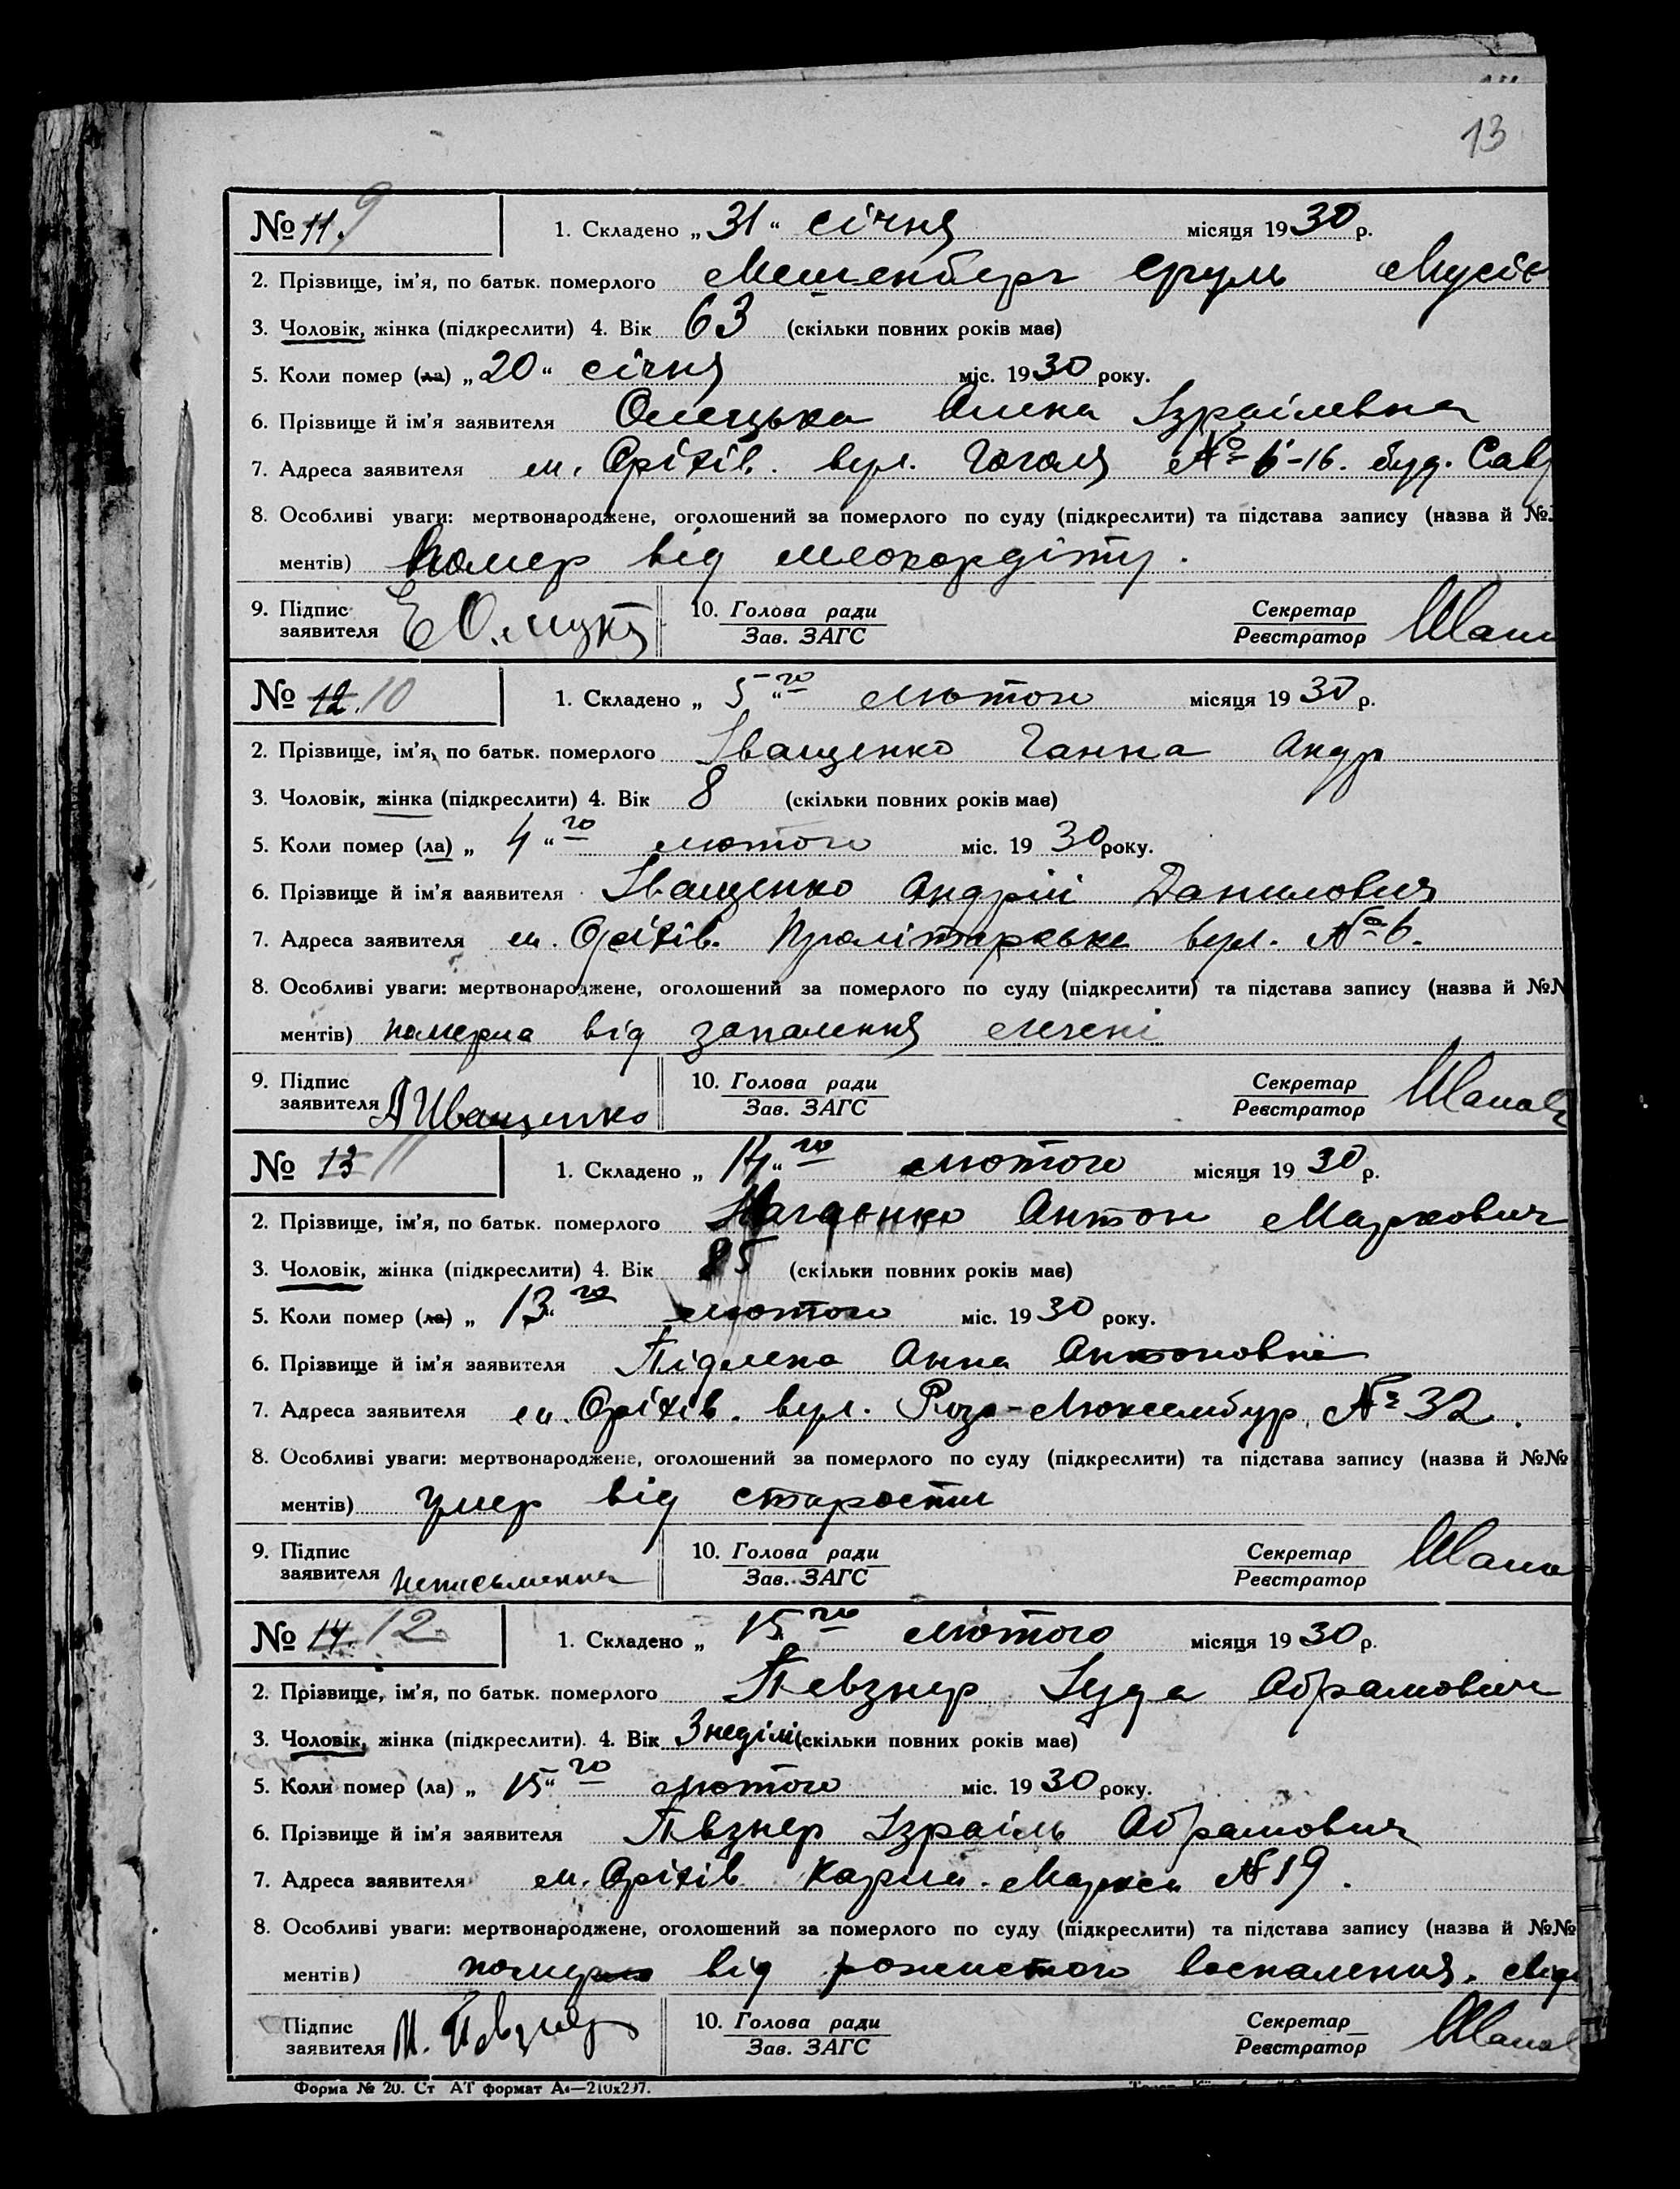 13
№ 11. 9
1. Складено „31“ січня місяця 1930 р.
2. Прізвище, ім’я, по батьк. померлого Мешенберг Сруль Мусій
3. Чоловік, жінка (підкреслити) 4. Вік 63 (скільки повних років має)
5. Коли помер (ла) „20“ січня міс. 1930 року.
6. Прізвище й ім’я заявителя Ізраілевна
7. Адреса заявителя м. Оріхів. вул. Гоголя № 6-16. буд.
8. Особливі уваги: мертвонароджене, оголошений за померлого по суду (підкреслити) та підстава запису (назва й №
ментів) Помер від міокордіту.
9. Підпис заявителя
10. Голова ради
Зав. ЗАГС
Секретар
Реєстратор
№ 12. 10
1. Складено „5“го лютого місяця 1930 р.
2. Прізвище, ім’я, по батьк. померлого Іващенко Ганна Андр
3. Чоловік, жінка (підкреслити) 4. Вік 8 (скільки повних років має)
5. Коли помер (ла) „4“го лютого міс. 1930 року.
6. Прізвище й ім’я заявителя Іващенко Андрій Данилович
7. Адреса заявителя м. Оріхів. Пролітарське вул. № 6.
8. Особливі уваги: мертвонароджене, оголошений за померлого по суду (підкреслити) та підстава запису (назва й №№
ментів) померла від запалення легені
9. Підпис заявителя А Иващенко
10. Голова ради
Зав. ЗАГС
Секретар
Реєстратор
№ 13 11
1. Складено „14“го лютого місяця 1930 р.
2. Прізвище, ім’я, по батьк. померлого Антон Маркович
3. Чоловік, жінка (підкреслити) 4. Вік 85 (скільки повних років має)
5. Коли помер (ла) „13“го лютого міс. 1930 року.
6. Прізвище й ім’я заявителя Анна Антоновна
7. Адреса заявителя м. Оріхів. вул. Роза-Люксембур, № 32.
8. Особливі уваги: мертвонароджене, оголошений за померлого по суду (підкреслити) та підстава запису (назва й №№
ментів) умер від старости
9. Підпис заявителя неписьменна
10. Голова ради
Зав. ЗАГС
Секретар
Реєстратор
№ 14. 12.
1. Складено „15го лютого місяця 1930 р.
2. Прізвище, ім’я, по батьк. померлого Певзнер Іуда Абрамович
3. Чоловік, жінка (підкреслити). 4. Вік 3 неділі (скільки повних років має)
5. Коли помер (ла) „15“го лютого міс. 1930 року.
6. Прізвище й ім’я заявителя Пвзнер Ізраіль Абрамович
7. Адреса заявителя м. Оріхів Карла-Маркса № 19.
8. Особливі уваги: мертвонароджене, оголошений за померлого по суду (підкреслити) та підстава запису (назва й №№
ментів) помер від рожистого воспаления.
Підпис заявителя И. Певзнер
10. Голова ради
Зав. ЗАГС
Секретар
Реєстратор
Форма № 20. Ст АТ формат А4—210х297.